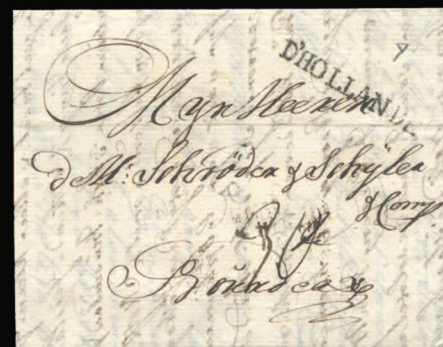 D'HOLLANDE
Myn Heeren
d M: Schröder & Schÿler
& Comp
Boŭrdeaux